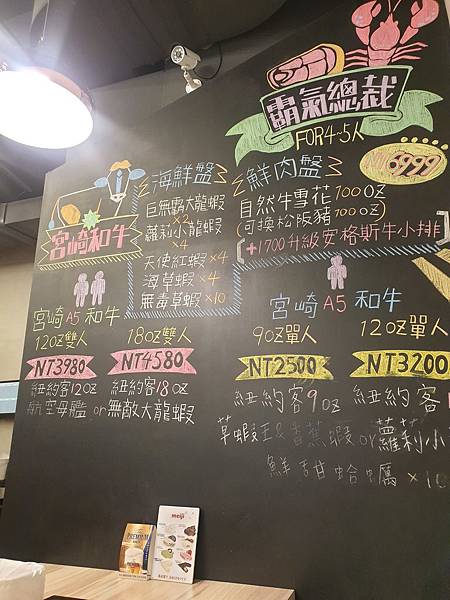 霸氣總裁
FOR 4~5人
NT6999
海鮮盤
巨無霸大龍蝦
×2
蘿莉小龍蝦
×4
天使紅蝦×4
海草蝦×4
無毒草蝦×10
鮮肉盤
自然牛雪花100oz
(可換松阪豬100oz)
[+1700升級安格斯牛小排]
宮崎和牛
宮崎A5和牛
12oz雙人 18oz雙人
NT3980 NT4580
紐約客12oz 紐約客18oz
航空母艦or無敵大龍蝦
宮崎A5和牛
9oz單人 12oz單人
NT2500 NT3200
紐約客9oz 紐約客
草蝦王&香蕉蝦or蘿莉小
鮮甜蛤蠣×10
PREMIUM
meiji